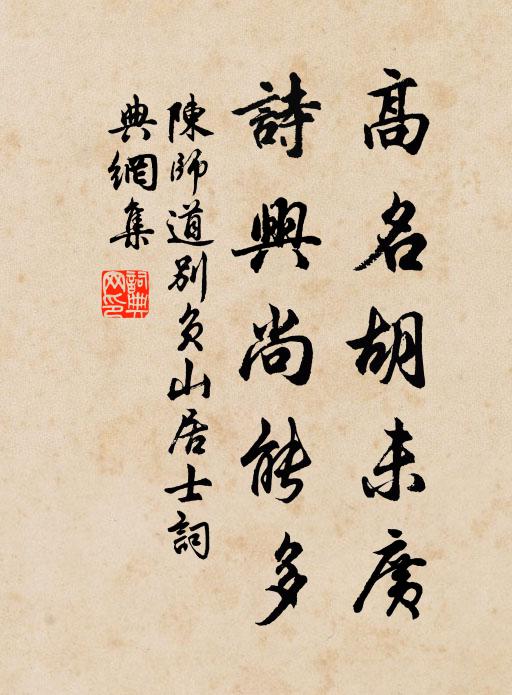 高名胡未廣
詩興尚能多
陳師道別負山居士詞
典網集
詞典网印